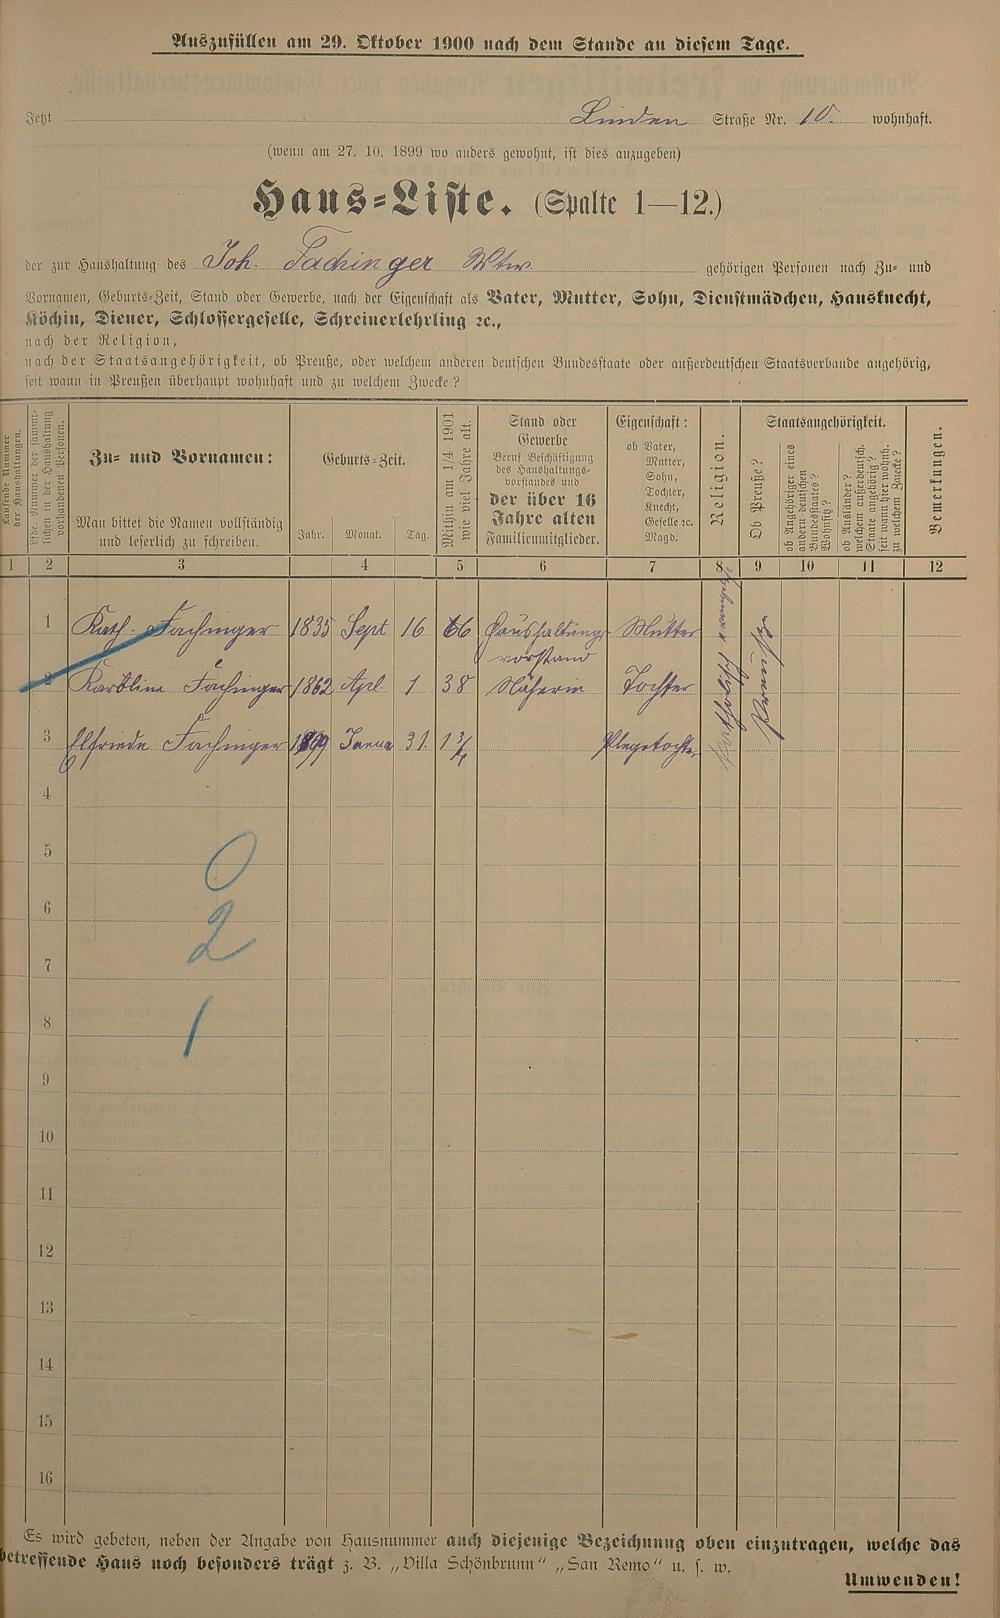 Auszufüllen am 29. Oktober 1900 nach dem Stande an diesem Tage.
Jetzt Linden Straße Nr. 10. wohnhaft.
(wenn am 27. 10. 1899 wo anders gewohnt, ist dies anzugeben)
Haus-Liste. (Spalte 1—12.)
der zur Haushaltung des Joh. Fachinger Wtw. gehörigen Personen nach Zu- und
Vornamen, Geburts-Zeit, Stand oder Gewerbe, nach der Eigenschaft als Vater, Mutter, Sohn, Dienstmädchen, Hausknecht,
Köchin, Diener, Schlossergeselle, Schreinerlehrling ꝛc.,
nach der Religion,
nach der Staatsangehörigkeit, ob Preuße, oder welchem anderen deutschen Bundesstaate oder außerdeutschen Staatsverbande angehörig,
seit wann in Preußen überhaupt wohnhaft und zu welchem Zwecke?
Laufende Nummer
der Haushaltungen.
Lfde. Nummer der sämmt-
lichen in der Haushaltung
vorhandenen Personen.
Zu- und Vornamen:
Man bittet die Namen vollständig
und leserlich zu schreiben.
Geburts-Zeit.
Jahr. Monat. Tag.
Mithin am 1/4 1901
wie viel Jahre alt.
Stand oder
Gewerbe
Beruf Beschäftigung
des Haushaltungs-
vorstandes und
der über 16
Jahre alten
Familienmitglieder.
Eigenschaft:
ob Vater,
Mutter,
Sohn,
Tochter,
Knecht,
Geselle ꝛc.
Magd.
Religion.
Staatsangehörigkeit.
Ob Preuße?
ob Angehöriger eines
andern deutschen
Bundesstaates?
Wohnsitz?
ob Ausländer?
welchem außerdeutsch.
Staate angehörig?
seit wann hier wohnh.
zu welchem Zwecke?
Bemerkungen.
1 2 3 4 5 6 7 8 9 10 11 12
1 Kath. Fachinger 1835 Sept 16 66 Haushaltungs Mutter
vorstand
2 Karoline Fachinger 1862 Apl. 1 38 Näherin Tochter
3 Elfriede Fachinger 1899 Janua 31. 1 3/4 Plegetochter
Preußisch
4
5
0
6
2
7
8
1
9
10
11
12
13
14
15
16
Es wird gebeten, neben der Angabe von Hausnummer auch diejenige Bezeichnung oben einzutragen, welche das
betreffende Haus noch besonders trägt z. B. „Villa Schönbrunn“ „San Remo“ u. s. w.
Umwenden!